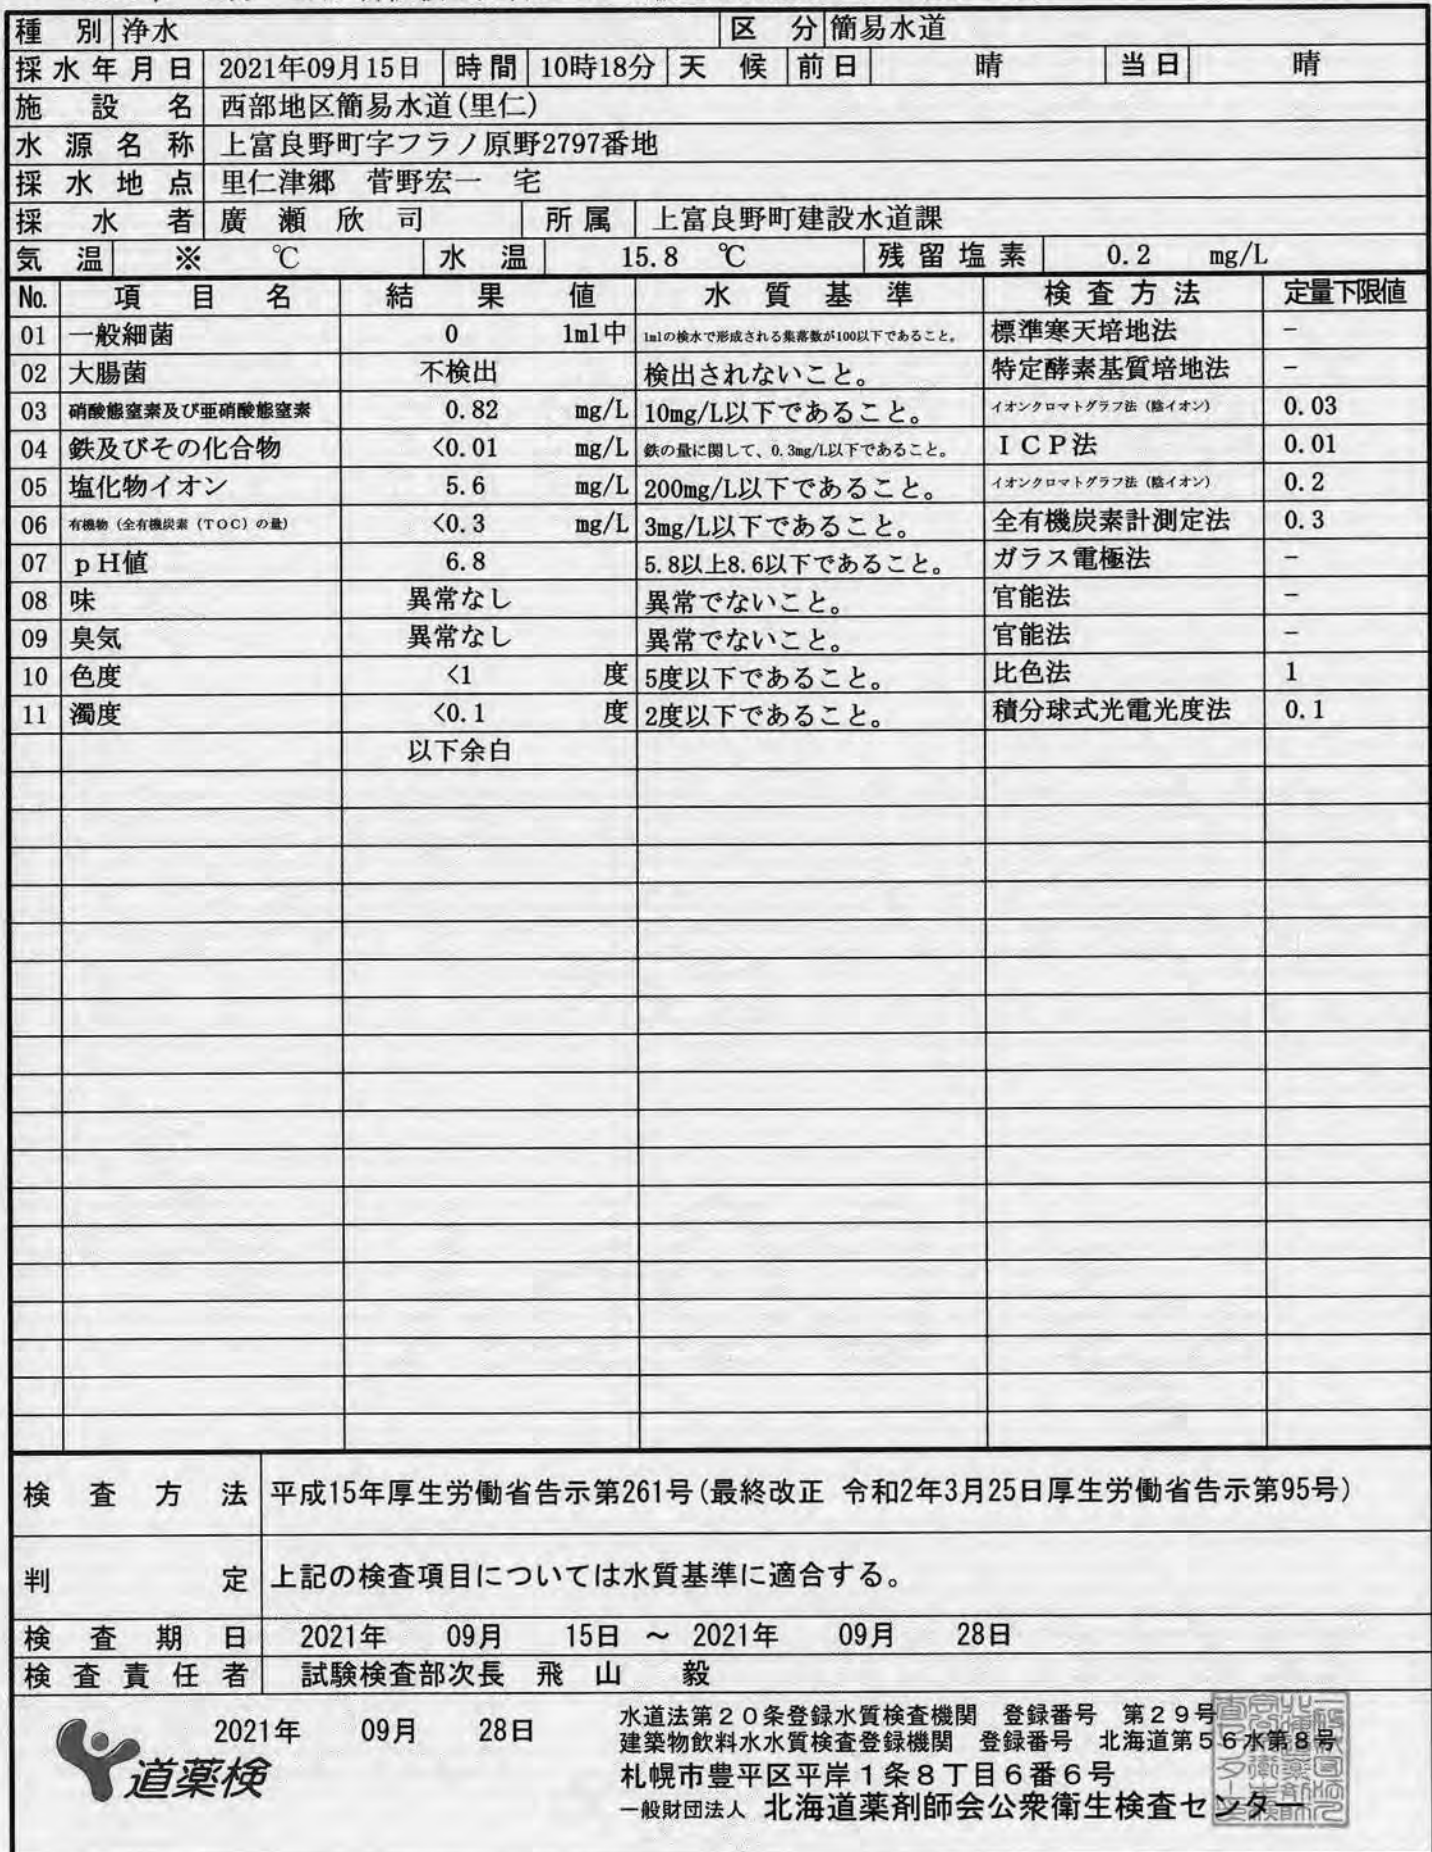 種 別 浄水 区 分 簡易水道
採水年月日 2021年09月15日 時間 10時18分 天 候 前日 晴 当日 晴
施 設 名 西部地区簡易水道(里仁)
水 源 名 称 上富良野町字フラノ原野2797番地
採 水 地 点 里仁津郷 菅野宏一 宅
採 水 者 廣 瀬 欣 司 所属 上富良野町建設水道課
気 温 ※ ℃ 水 温 15.8 ℃ 残留塩素 0.2 mg/L
No. 項 目 名 結 果 値 水 質 基 準 検 査 方 法 定量下限値
01 一般細菌 0 1ml中 1mlの検水で形成される集落数が100以下であること。 標準寒天培地法 -
02 大腸菌 不検出 検出されないこと。 特定酵素基質培地法 -
03 硝酸態窒素及び亜硝酸態窒素 0.82 mg/L 10mg/L以下であること。 イオンクロマトグラフ法(陰イオン) 0.03
04 鉄及びその化合物 <0.01 mg/L 鉄の量に関して、0.3mg/L以下であること。 ICP法 0.01
05 塩化物イオン 5.6 mg/L 200mg/L以下であること。 イオンクロマトグラフ法(陰イオン) 0.2
06 有機物(全有機炭素(TOC)の量) <0.3 mg/L 3mg/L以下であること。 全有機炭素計測定法 0.3
07 pH値 6.8 5.8以上8.6以下であること。 ガラス電極法 -
08 味 異常なし 異常でないこと。 官能法 -
09 臭気 異常なし 異常でないこと。 官能法 -
10 色度 <1 度 5度以下であること。 比色法 1
11 濁度 <0.1 度 2度以下であること。 積分球式光電光度法 0.1
以下余白
検 査 方 法 平成15年厚生労働省告示第261号(最終改正 令和2年3月25日厚生労働省告示第95号)
判 定 上記の検査項目については水質基準に適合する。
検 査 期 日 2021年 09月 15日 ～ 2021年 09月 28日
検 査 責 任 者 試験検査部次長 飛 山 毅
2021年 09月 28日
道薬検
水道法第20条登録水質検査機関 登録番号 第29号
建築物飲料水水質検査登録機関 登録番号 北海道第56水第8号
札幌市豊平区平岸1条8丁目6番6号
一般財団法人 北海道薬剤師会公衆衛生検査センター